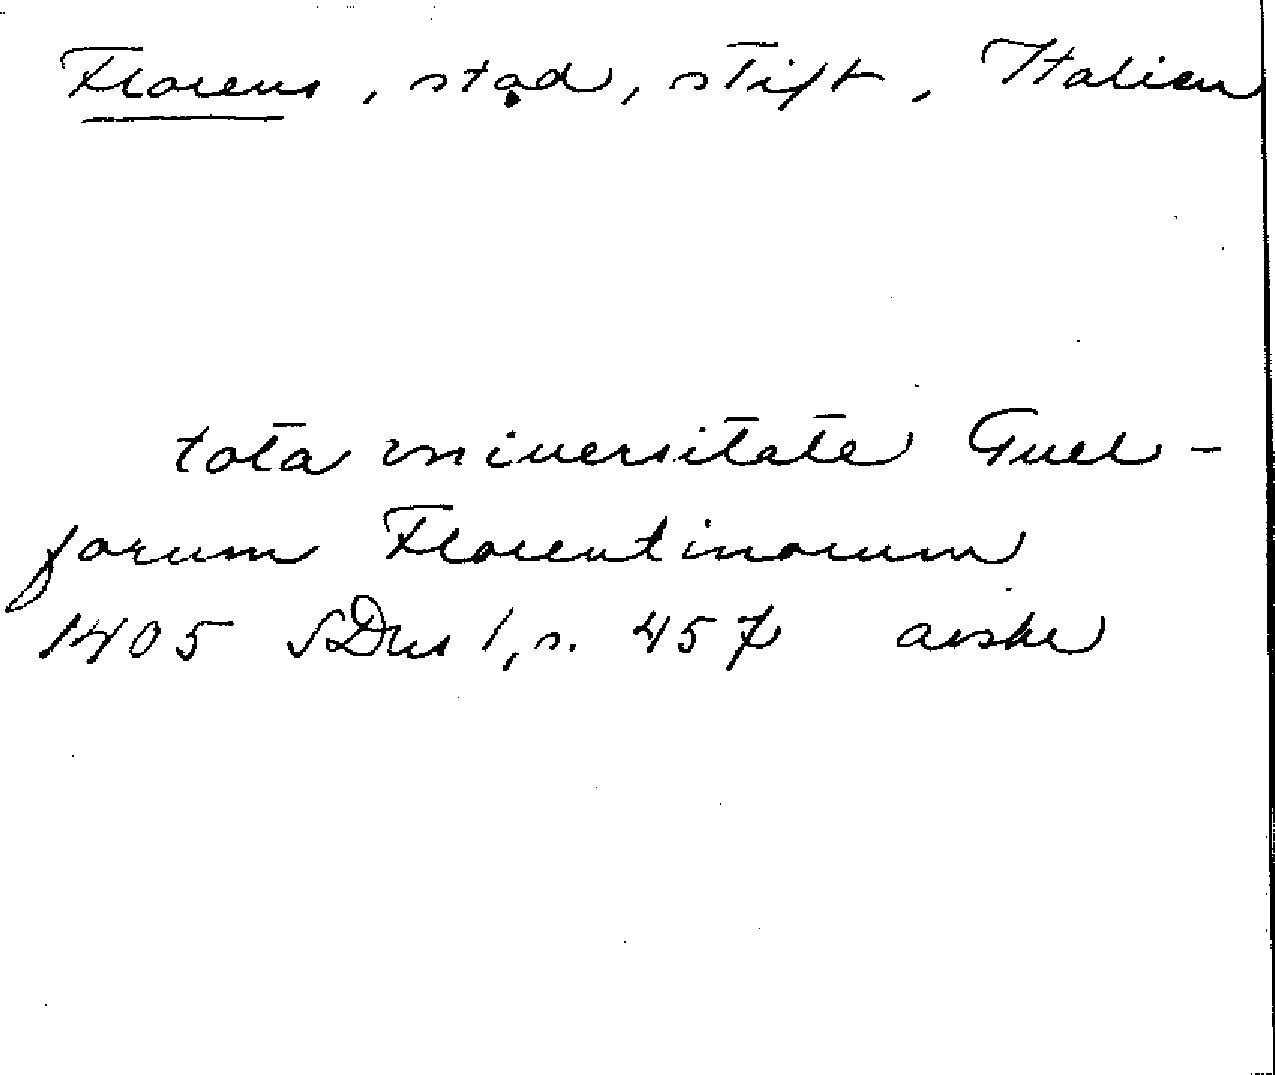 Florens, stad, stift, Italien
tota universitate Guel-
forum Florentinorum
1405 SDns 1, s. 457 avskr